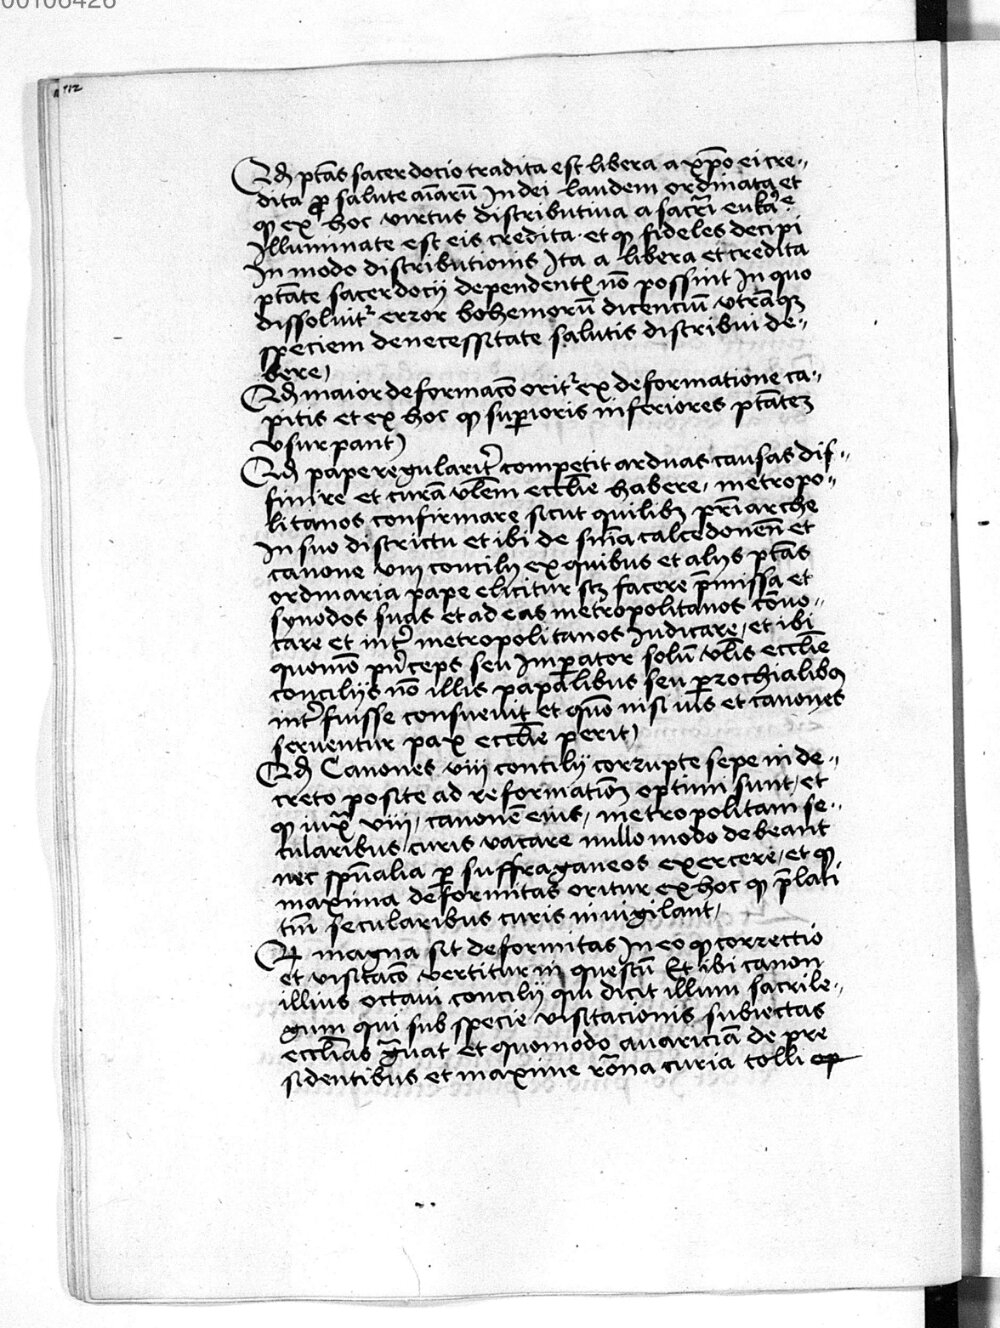 00106426
112
Qđ ptãs sacerdocio tradita est libera a xp̃o ei cre-
dita ꝓ salute aiãrũ In dei laudem ordinata et
qꝫ ex hoc virtus distributiua a sacr̃i eukãe
Illuminate est eis credita et qꝫ fideles decipi
In modo distributionis Ita a libera et credita
ptãte sacerdocij dependentꝭ nõ possint In quo
dissoluitᷣ error bohemorũ dicenciũ vtrãqꝫ
speciem de necessitate salutis distribui de-
bere
Qđ maior deformacõ oritᷣ ex deformatione ca-
pitis et ex hoc qꝫ suꝑioris inferiores ptãtem
vsurpant
Qđ pape regularitᷣ competit arduas causas dif-
finire et curã vl̃em eccl̃ie habere, metropo-
litanos confirmare sicut quilibꝫ pr̃iarche
In suo districtu et ibi de sñia calcedoneñ et
canone viij concilij ex quibus et alijs ptãs
ordinaria pape elicitur scꝫ facere p̃missa et
synodos suas et ad eas metropolitanos cõuo-
care et int᷒ metropolitanos Iudicare, et ibi
quomõ pͥnceps seu Imꝑator solũ vl̃is eccl̃ie
concilijs nõ illis papalibus seu ꝑrochialibus
int᷒fuisse consueuit et quõ nisi ius et canones
seruentur pax eccl̃ie perit
Qđ Canones viij concilij corrupte sepe in de-
creto posite ad reformationẽ optimi sunt, et
qꝫ iuxᵃ viij, canonẽ eius, metropolitani se-
cularibus curis vacare nullo modo debeant
nec spũalia ꝑ suffraganeos exercere, et qꝫ
maxima deformitas oritur ex hoc qꝫ p̃lati
tm̃ secularibus curis inuigilant,
Qꝫ magna sit deformitas In eo qꝫ correctio
et visitacõ vertitur in questũ Et ibi canon
illius octaui concilij qui dicit illum sacrile-
gum qui sub specie visitacionis subiectas
eccl̃ias gͣuat Et quomodo auariciã de pre
sidentibus et maxime rõna curia tolli op